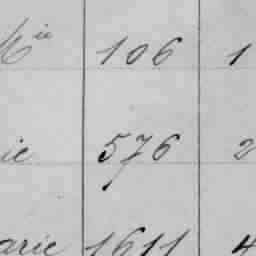 Mie 106 1
ie 576 2
arie 1611 4